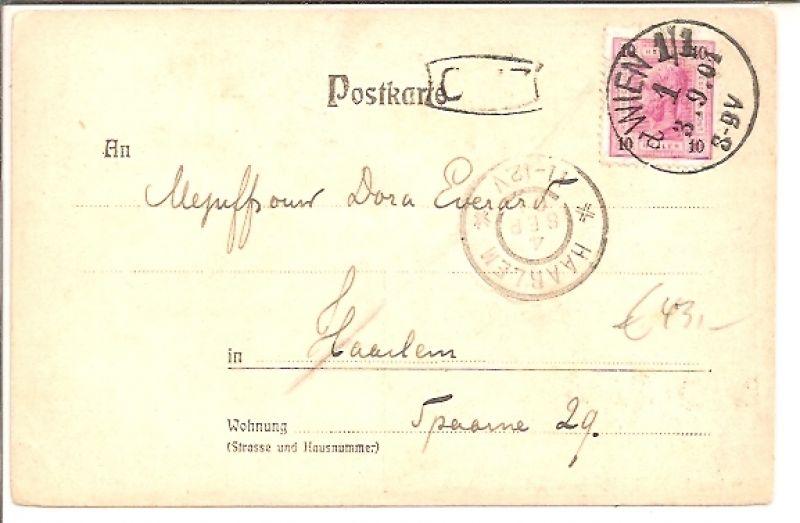 Postkarte
10 10
10 10
WIEN 1/1
1
3.9.01
3-9V
An
Mejuffrouw Dora Everard
HAARLEM
4
SEP
01
11-12V
€ 43,-
in Haarlem
Wohnung Spaarne 29.
(Strasse und Hausnummer)